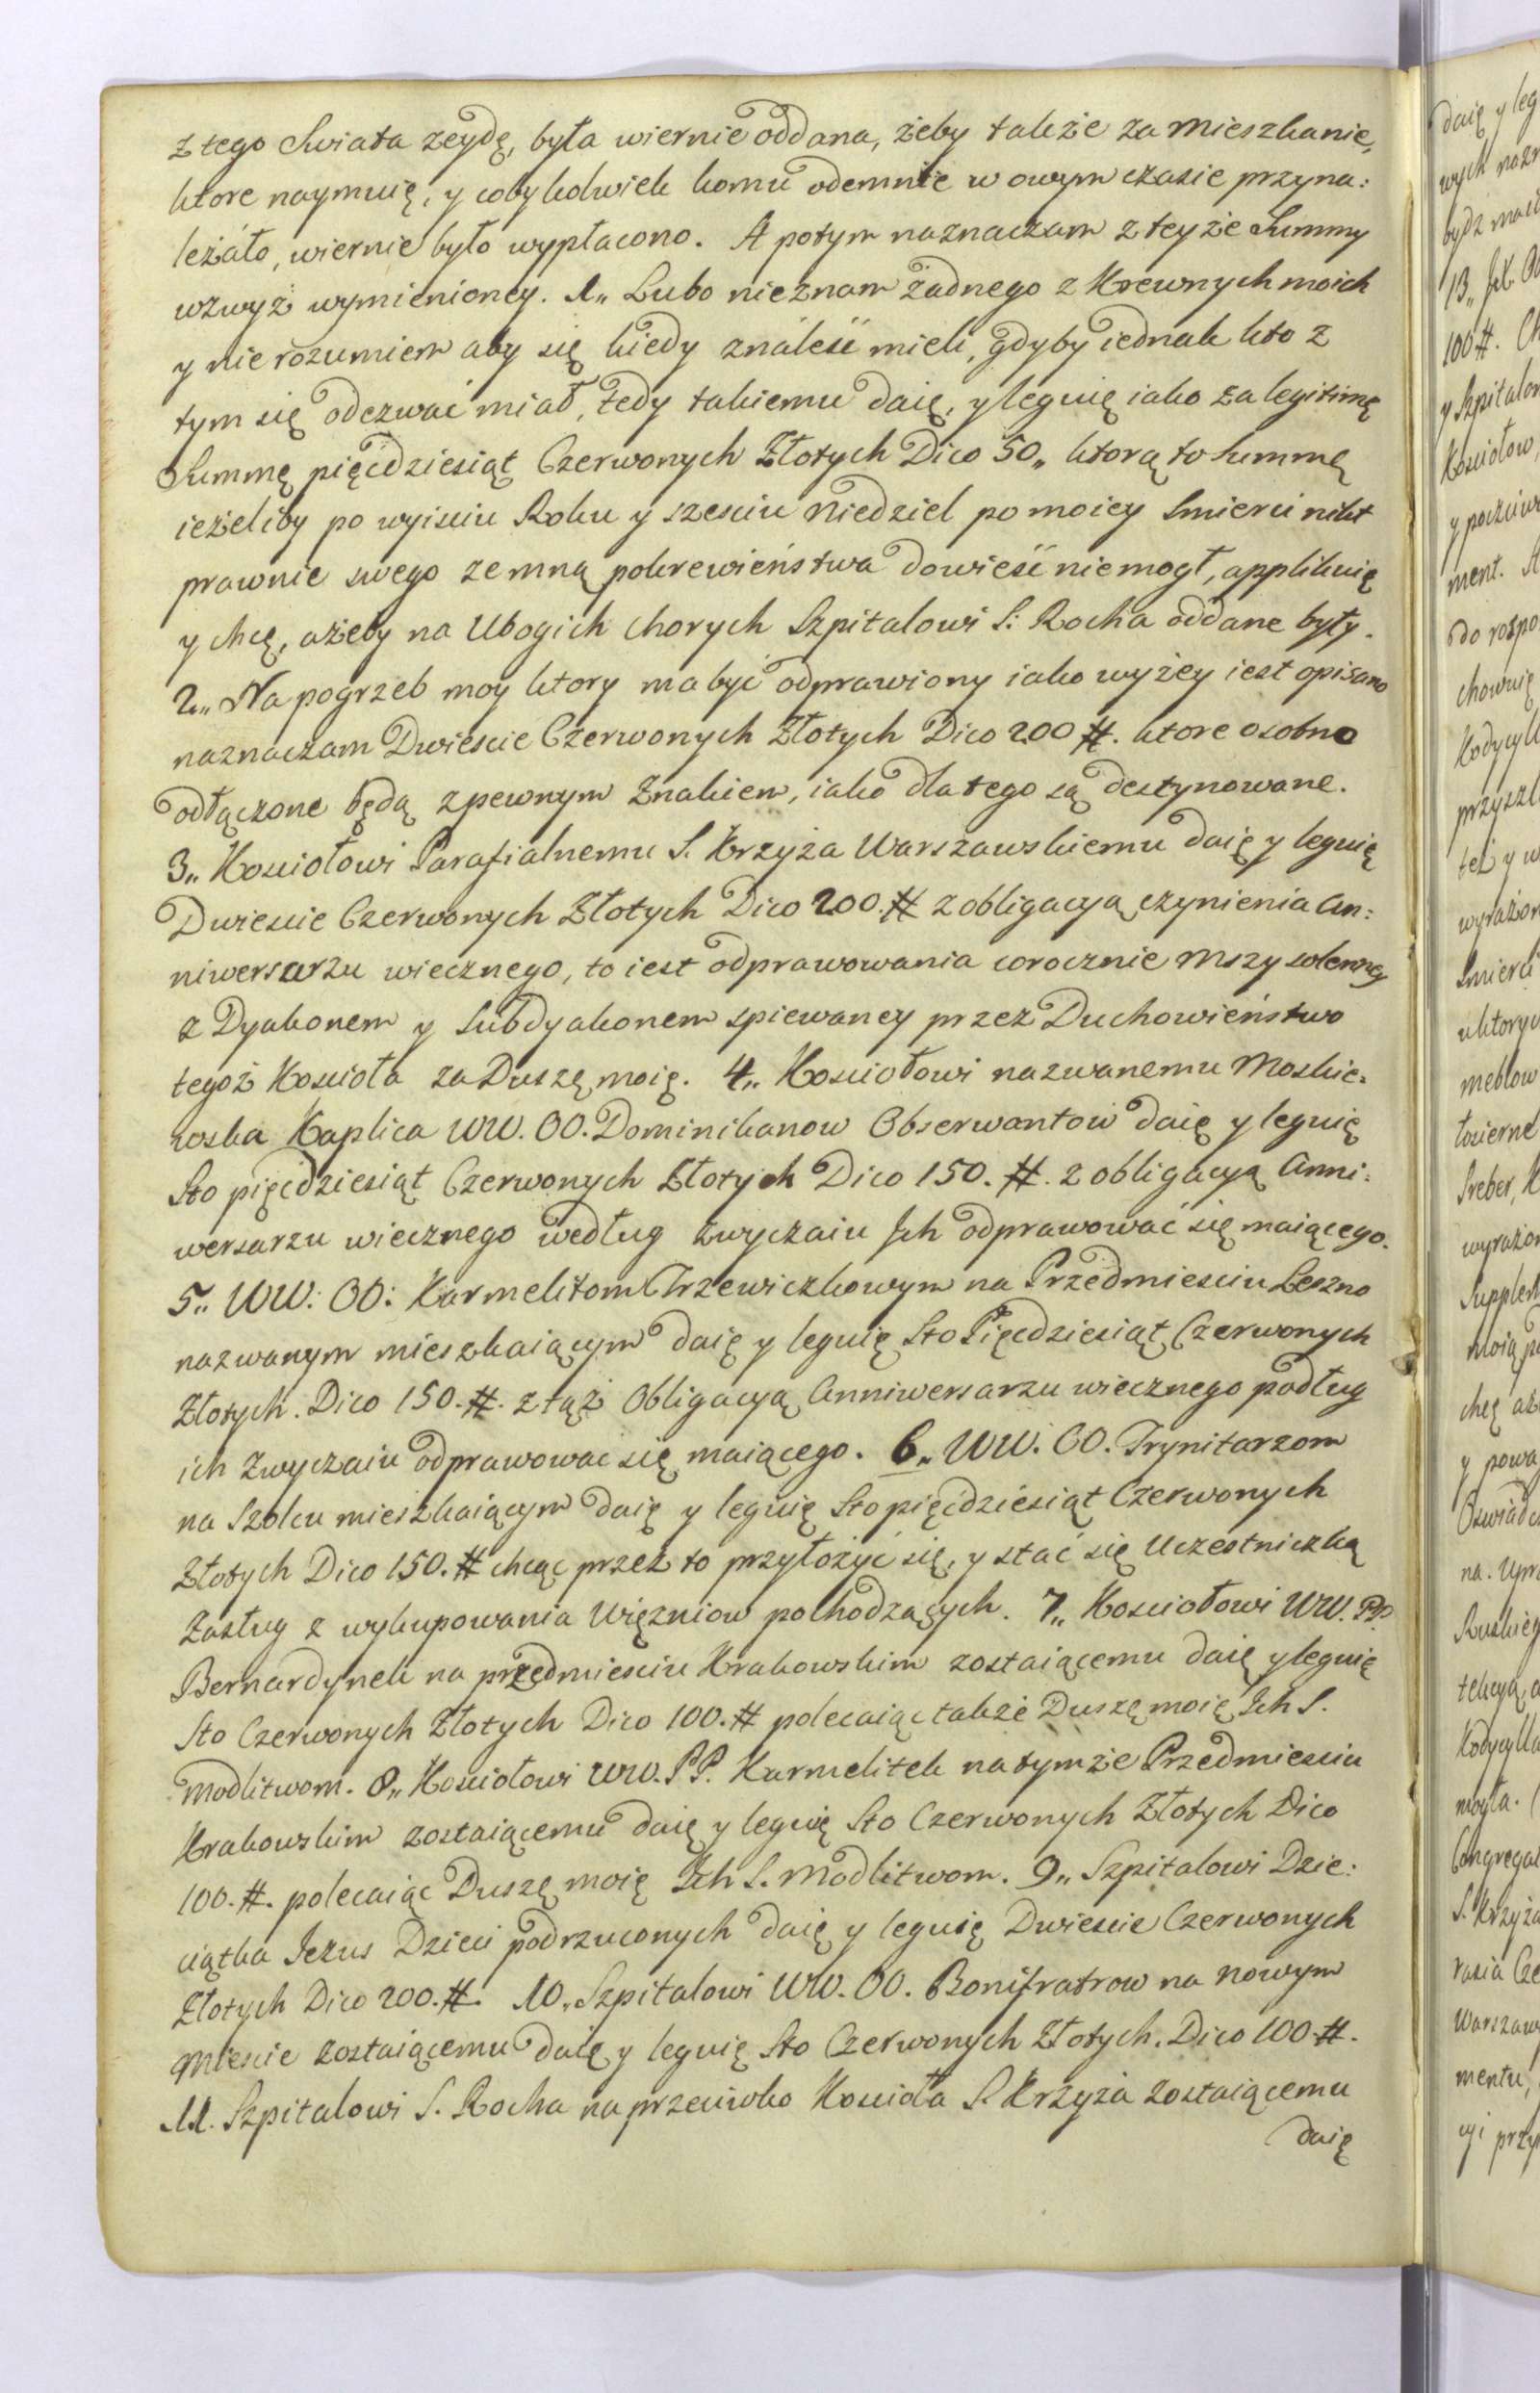 z tego Swiata zeydę, była wiernie oddana, żeby także za mieszkanie,
ktore naymuię, y cobykolwiek komu odemnie w owym czasie przyna:
leżáło, wiernie było wypłacono. A potym naznaczam z teyże Summy
wzwyż wymienioney. 1„ Lubo nieznam żadnego z Krewnych moich
y nie rozumiem aby się kiedy ználeść mieli, gdyby iednak kto z
tym się odezwać miał, tedy takiemu daię, y leguię iako za legitimę
Summę pięćdziesiąt Czerwonych Złotych Dico 50„ ktorą to summę
ieżeliby po wyisciu Roku y szesciu Niedziel po moiey Smierci nikt
prawnie swego zemną pokrewieństwa dowieść niemogł, applikuię
y chcę, ażeby na Ubogich chorych Szpitalowi S: Rocha oddane były.
2„ Na pogrzeb moy ktory ma być odprawiony iako wyżey iest opisano
naznaczam Dwiescie Czerwonych Złotych Dico 200 #. ktore osobno
odłączone będą z pewnym Znakiem, iako dla tego są destynowane.
3„ Kosciołowi Parafialnemu S. Krzyża Warszawskiemu daię y leguię
Dwiescie Czerwonych Złotych Dico 200. # z obligacyą czynienia An:
niwersarzu wiecznego, to iest odprawowania corocznie Mszy solenney
z Dyakonem y Subdyakonem spiewaney przez Duchowieństwo
tegoż Koscioła za Duszę moię. 4„ Kosciołowi nazwanemu Moskie:
wska Kaplica WW. OO. Dominikanow Obserwantow daię y leguię
Sto pięćdziesiąt Czerwonych Złotych Dico 150. #. z obligacyą Anni:
wersarzu wiecznego według zwyczaiu Ich odprawować się maiącego.
5„ WW: OO: Karmelitom Trzewiczkowym na Przedmiesciu Leszno
nazwanym mieszkaiącym daię y leguię Sto Pięcdziesiąt Czerwonych
Złotych. Dico 150. #. z tąż Obligacyą Anniwersarzu wiecznego podług
ich Zwyczaiu odprawowac się maiącego. 6„ WW. OO. Trynitarzom
na Szolcu mieszkaiącym daię y leguię Sto pięćdziesiąt Czerwonych
Złotych Dico 150. # chcąc przez to przyłożyć się, y stać się Uczestniczką
Zasług z wykupowania Więzniow pochodzących. 7„ Kosciołowi WW. PP.
Bernardynek na przedmiesciu Krakowskim zostaiącemu daię y leguię
Sto Czerwonych Złotych Dico 100. # polecaiąc także Duszę moię Ich S.
Modlitwom. 8„ Kosciołowi WW. PP. Karmelitek na tymże Przedmiesciu
Krakowskim zostaiącemu daię y leguię Sto Czerwonych Złotych Dico
100. #. polecaiąc Duszę moię Ich S. Modlitwom. 9„ Szpitalowi Dzie:
ciątka Jezus Dzieci podrzuconych daię y leguię Dwiescie Czerwonych
Złotych Dico 200. #. 10„ Szpitalowi WW. OO. Bonifratrow na Nowym
Miescie zostaiącemu daię y leguię Sto Czerwonych Złotych. Dico 100 #.
11. Szpitalowi S. Rocha naprzeciwko Koscioła S. Krzyża zostaiącemu
daię
daię y leg
wych nazn
bydz
13„
100 #.
y Szpitalow
Kosciołow,
y pocziw
ment. A
do rozpo
chowuię
Kodycyll
przyszl
też y w
wyrażon
Smierci
u ktoryc
meblow
Sreber, K
wyrażon
Supplem
moią
chcę aż
y powa
Oswiadc
na. Upra
Ruskiey
Kodycylla
mogła.
Congregat
S. Krzyża
Warszaw
mentu,
cyi przy